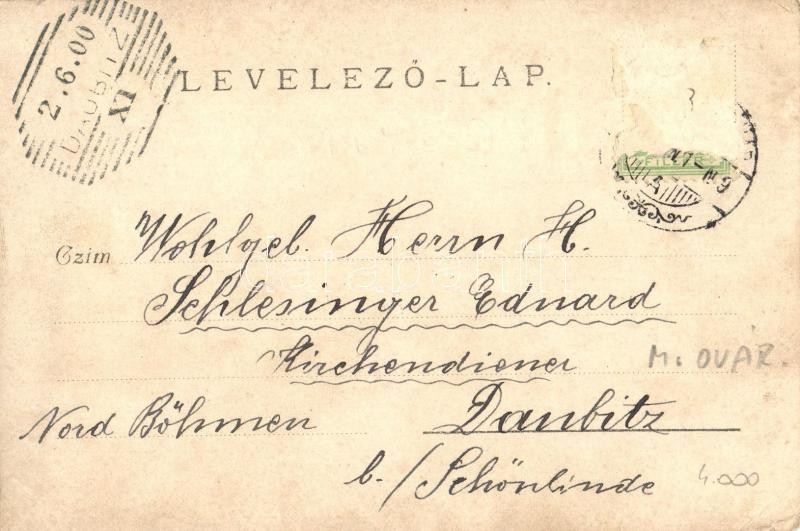 2.6.00
DAUBITZ
XI
LEVELEZŐ-LAP.
3
Czim Wohlgeb. Herrn H.
Schlesinger Eduard
Kirchendiener
M. OVÁR.
Nord Böhmen Daubitz
b./Schönlinde
4.000